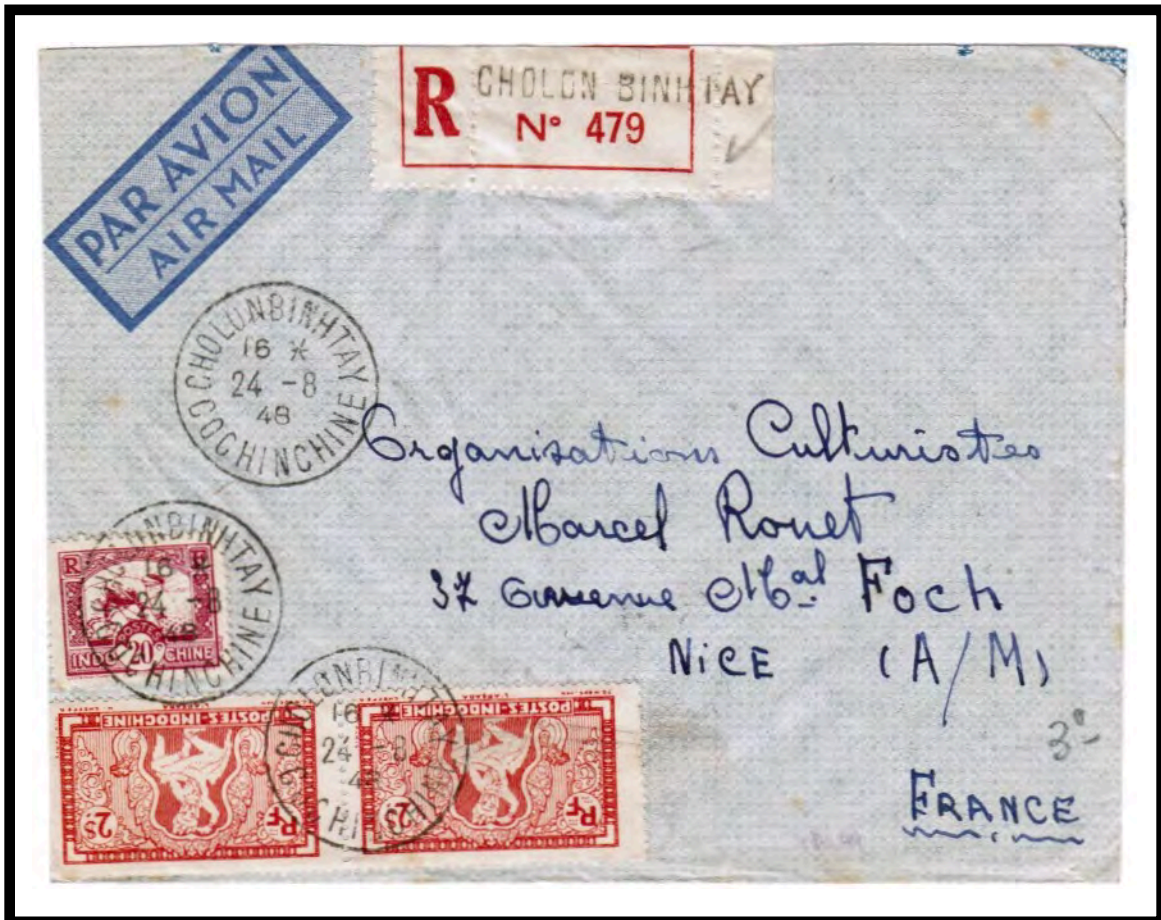 PAR AVION
AIR MAIL
R CHOLON BINHTAY
N° 479
CHOLONBINHTAY
16 *
24 -8
48
COCHINCHINE
Organisations Culturistes
Marcel Rouet
37 Avenue Mal Foch
NICE (A/M)
FRANCE
3-
CHOLONBINHTAY
16 *
24 -8
48
COCHINCHINE
RF
INDOCHINE
20c
CHOLONBINHTAY
16 *
24 -8
48
COCHINCHINE
POSTES-INDOCHINE
RF 2$
POSTES-INDOCHINE
RF 2$